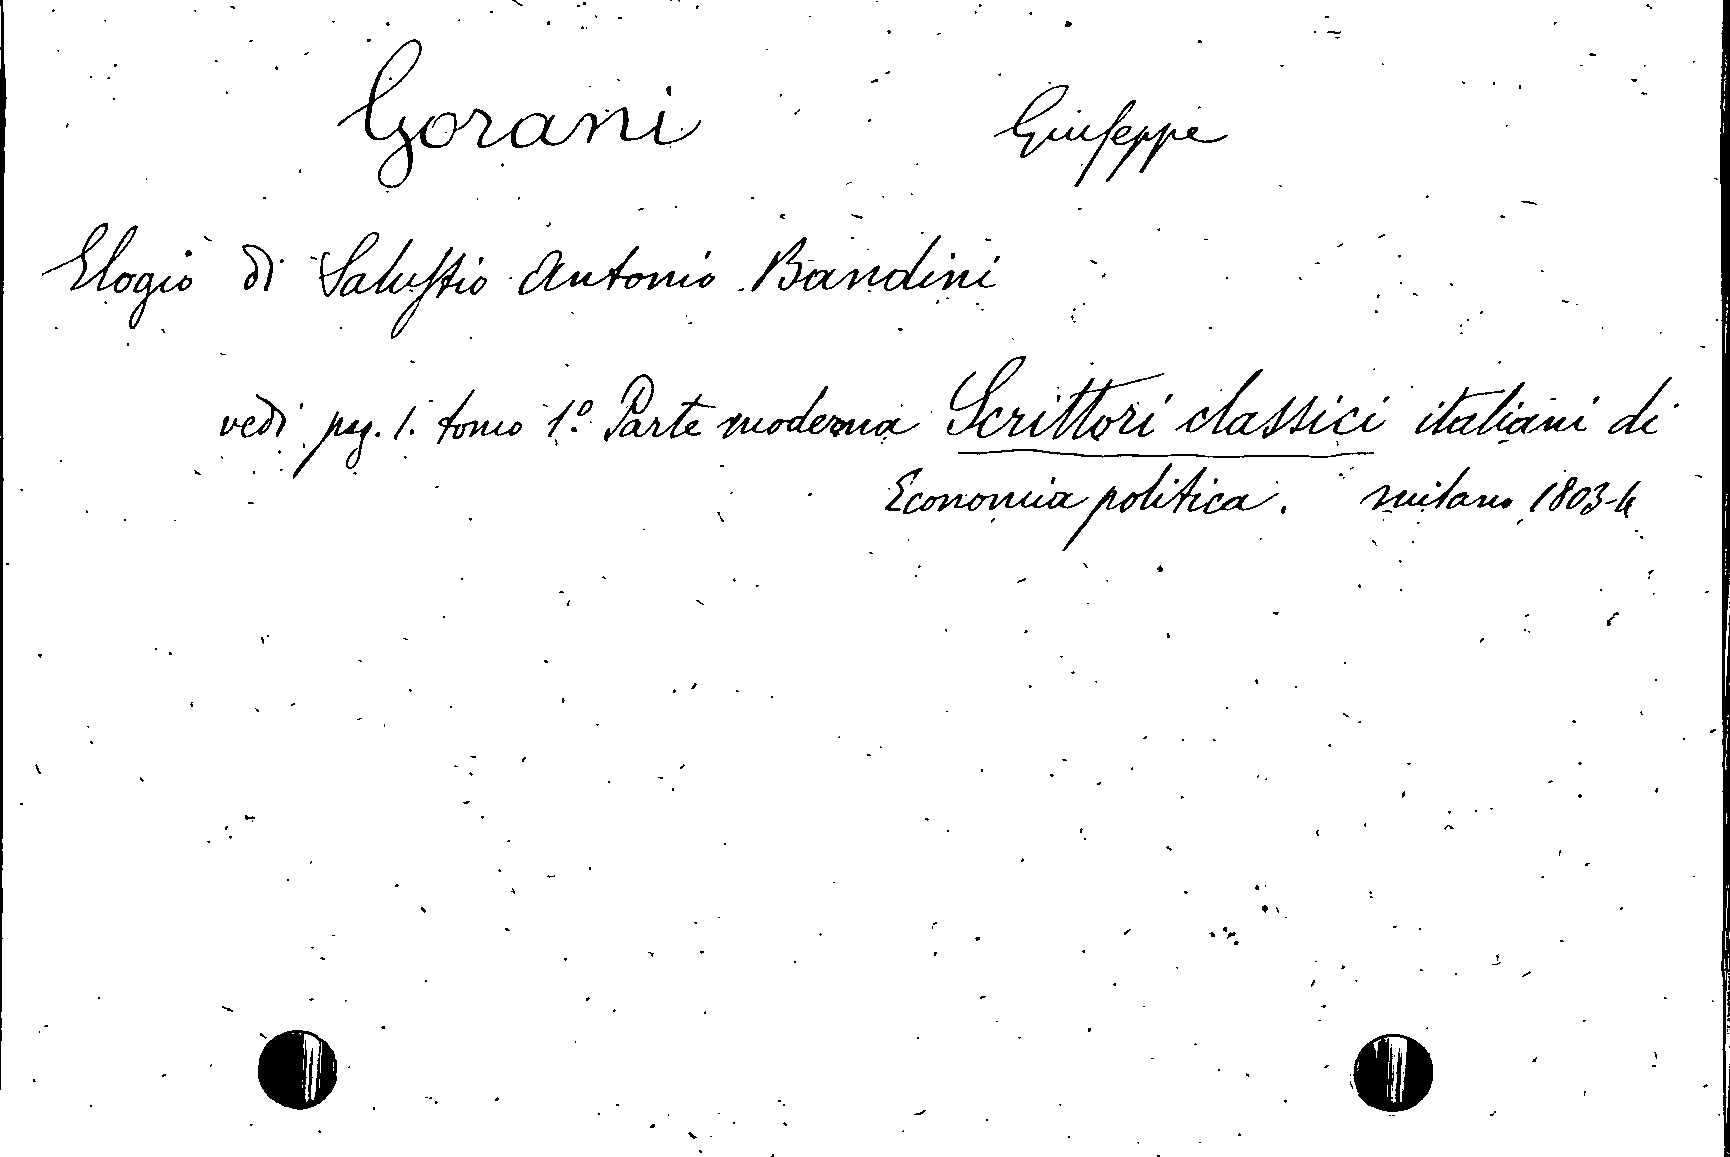 Gorani Giuseppe
Elogio di Salustio Antonio Bandini
vedi pag. 1. tomo 1.º Parte moderna Scrittori classici italiani di
Economia politica. Milano 1803-4